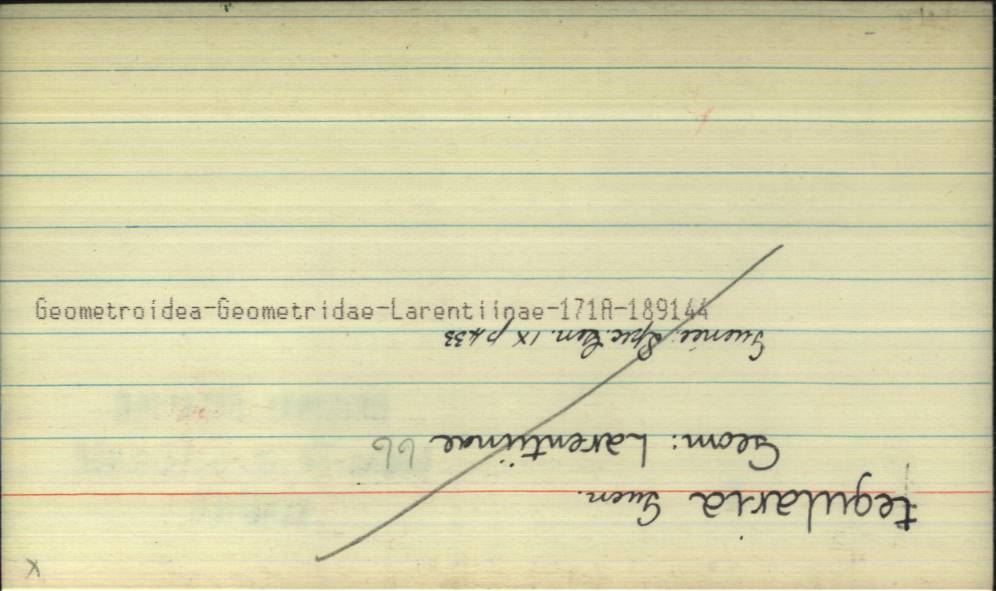 tegularia Guen.
Geom: Larentiinae 66
Guenée: Spec. Gen. IX p 433
Geometroidea-Geometridae-Larentiinae-171A-189144
X